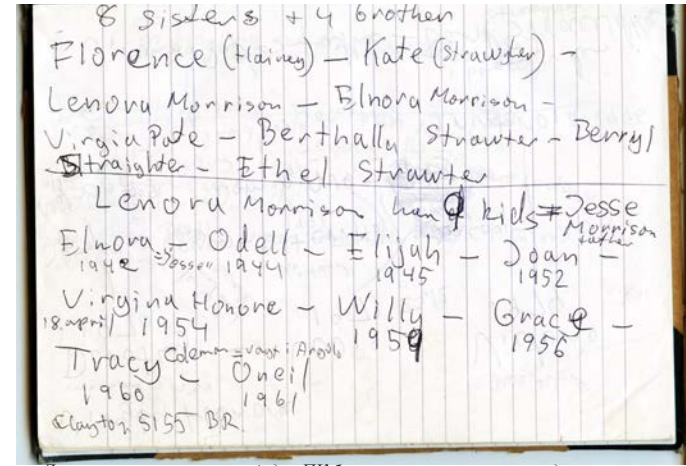 8 sisters + 4 brother
Florence (Hainey) – Kate (Strawder) –
Lenora Morrison – Elnora Morrison –
Virgia Pate – Berthally Strawter – Berryl
Straighter – Ethel Strawter
Lenora Morrison han 9 kids = Jesse
Morrison
father
Elnora – Odell – Elijah – Joan –
1942 1944 1945 1952
Virgina Honore – Willy – Grace –
18. april 1954 1959 1956
Tracy – Oneil
1960 1961
Clayton 5155 BR